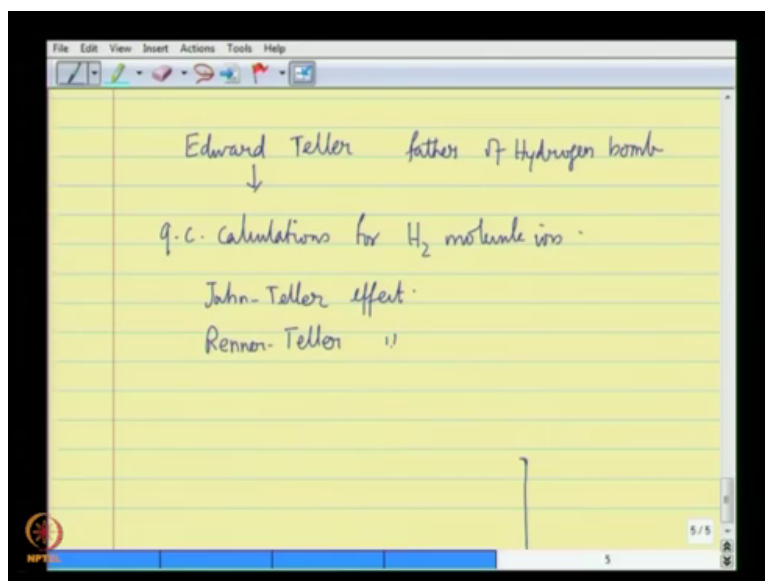 File Edit View Insert Actions Tools Help
Edward Teller father of Hydrogen bomb
↓
q.c. calculations for H₂ molecule ions.
Jahn-Teller effect.
Renner-Teller "
5/5
5
NPTEL